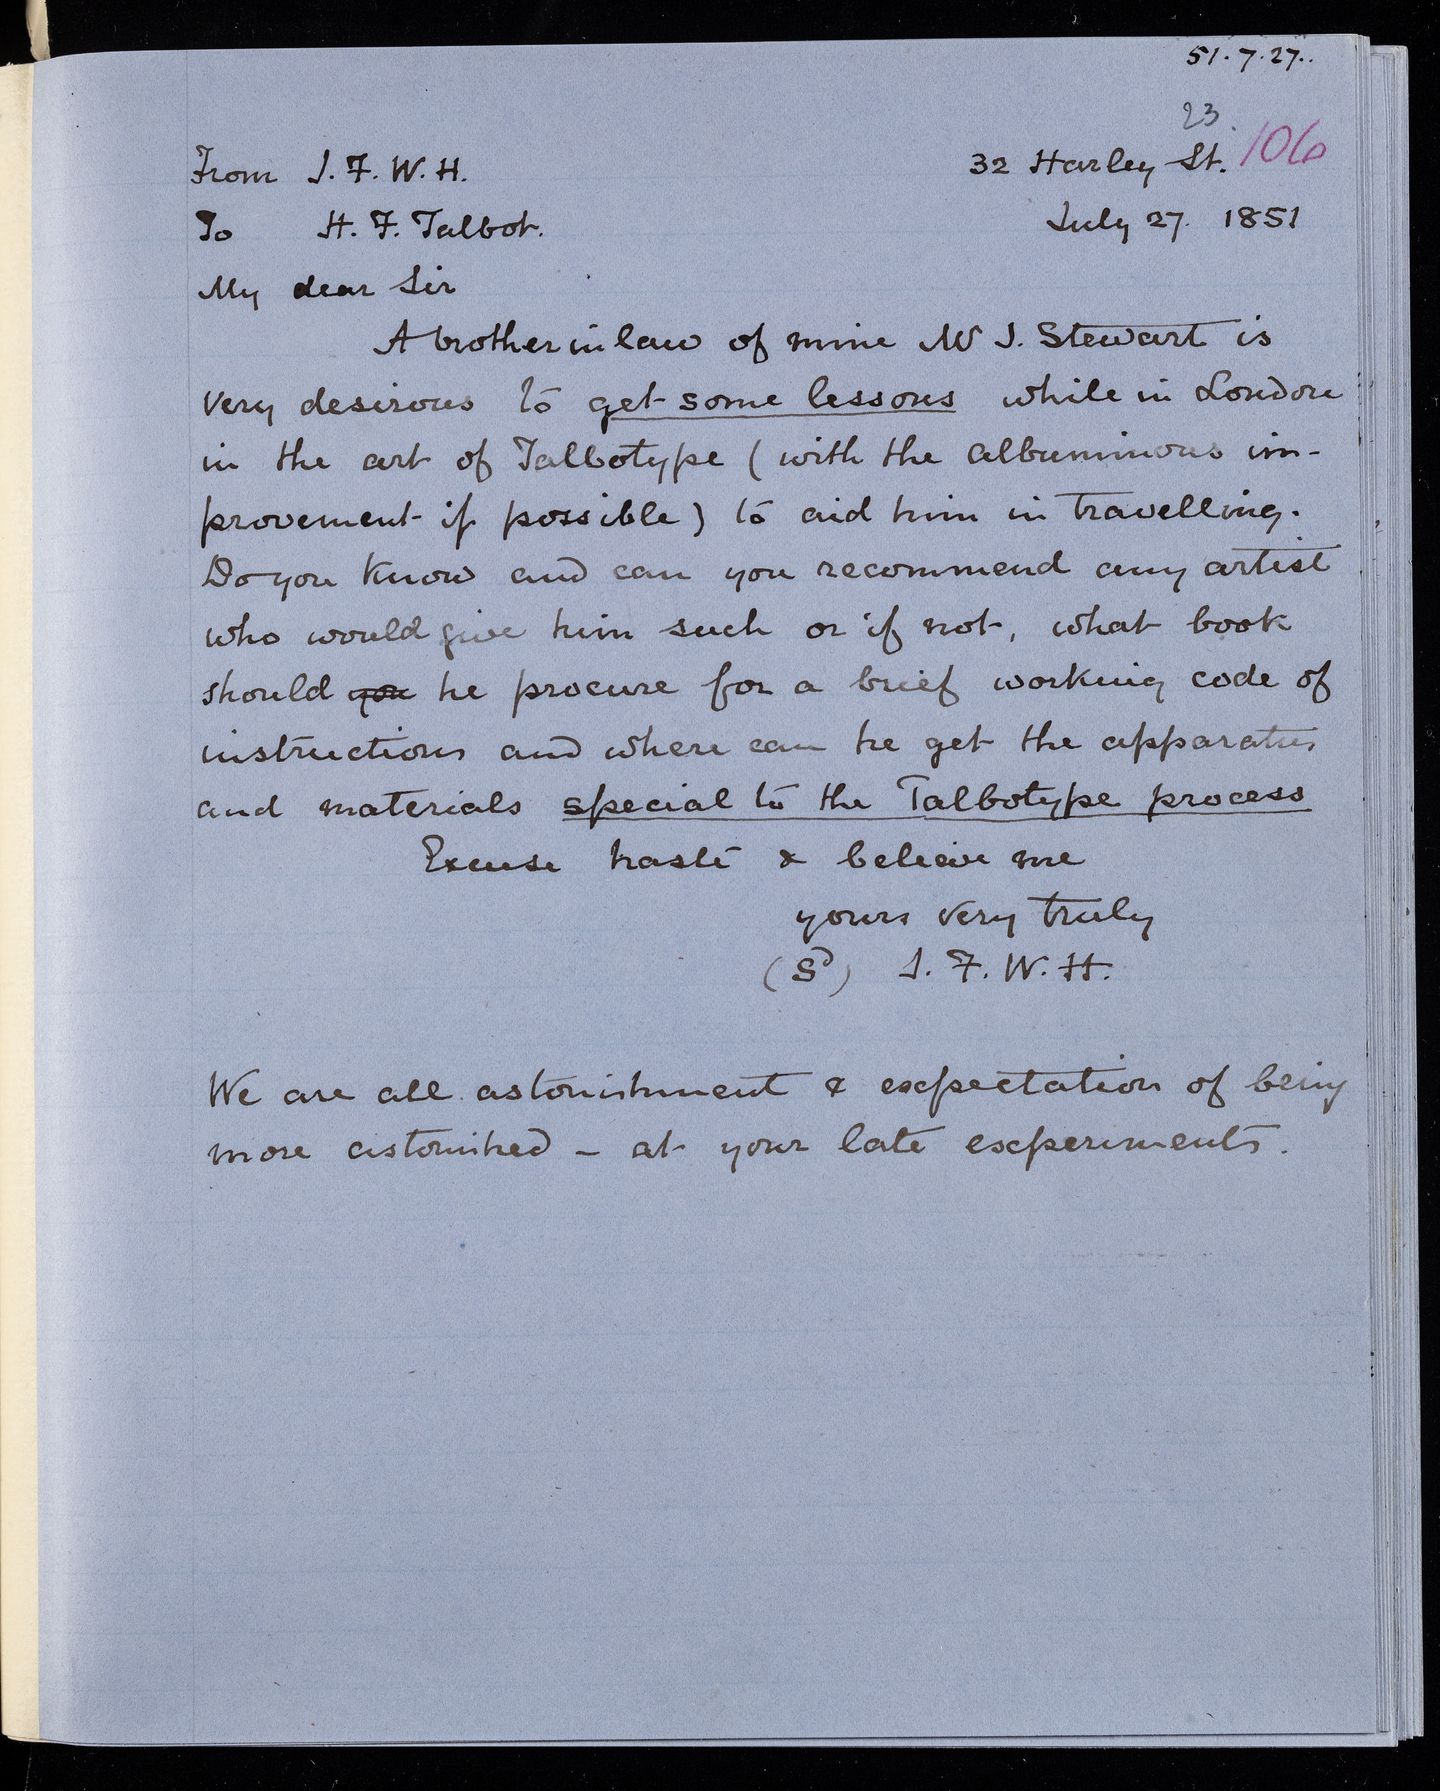 51.7.27..
23
106
From J. F. W. H.
32 Harley St.
To H. F. Talbot.
July 27. 1851
My dear Sir
A brother in law of mine Mr J. Stewart is
very desirous to get some lessons while in London
in the art of Talbotype (with the albuminous im-
provement if possible) to aid him in travelling.
Do you know and can you recommend any artist
who would give him such or if not, what book
should you he procure for a brief working code of
instructions and where can he get the apparatus
and materials special to the Talbotype process
Excuse haste & believe me
yours very truly
(Sd) J. F. W. H.
We are all astonishment & expectation of being
more astonished – at your late experiments.